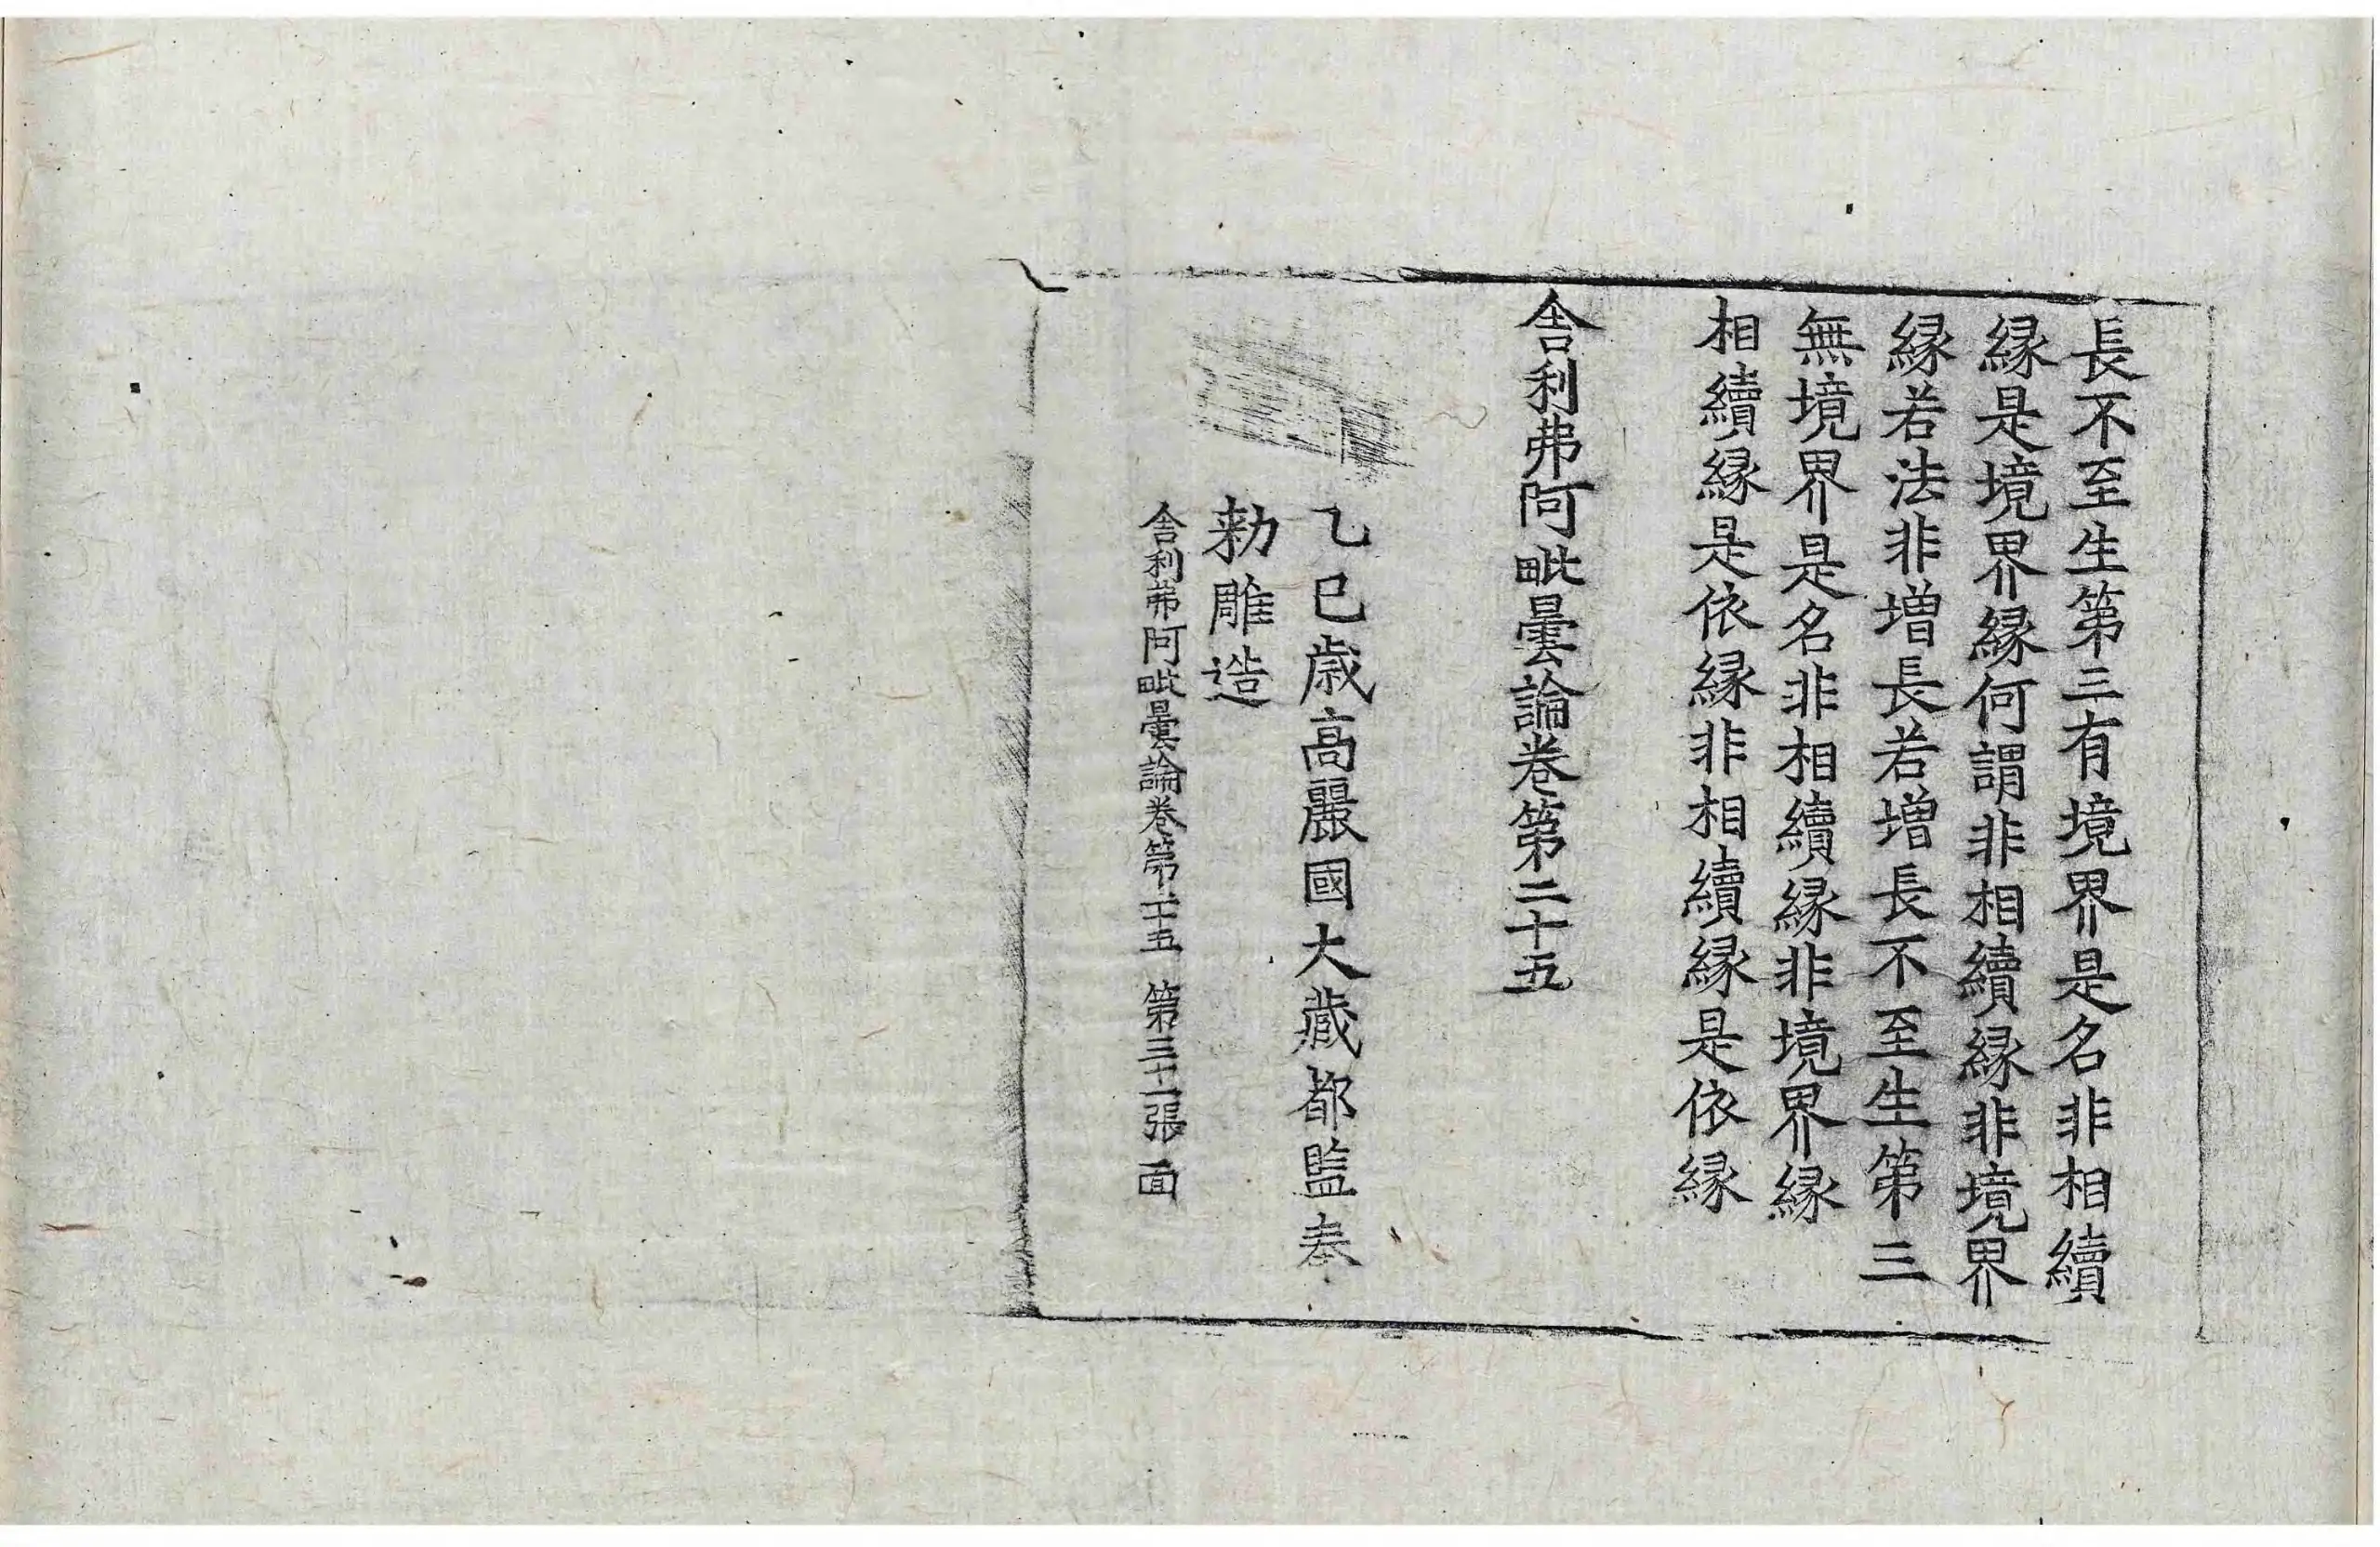 長不至生第三有境界是名非相續
縁是境界縁何謂非相續縁非境界
縁若法非增長若增長不至生第三
無境界是名非相續縁非境界縁
相續縁是依縁非相續縁是依縁
舍利弗阿毗曇論卷第二十五
乙巳歳高麗國大藏都監奉
勅雕造
舍利弗阿毗曇論卷第二十五 第三十二張 面